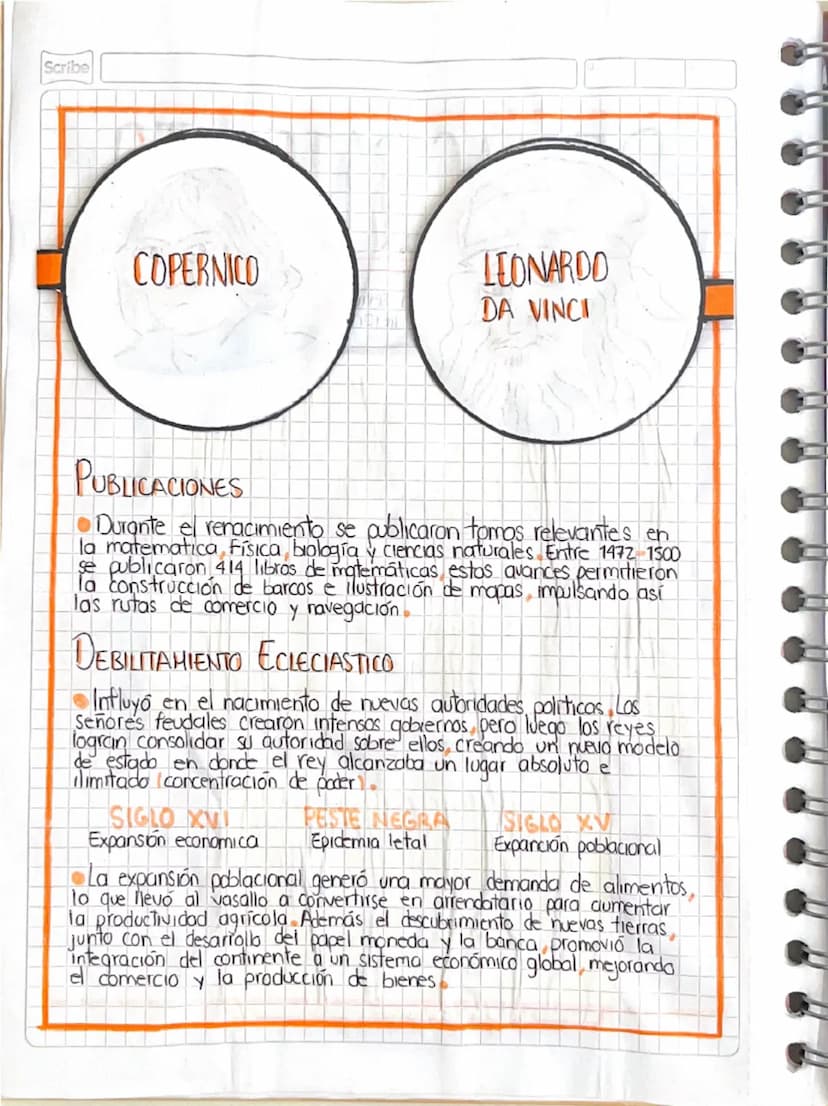 Scribe
COPERNICO
LEONARDO
DA VINCI
PUBLICACIONES
Durante el renacimiento se publicaron tomos relevantes en
la matematica, Física, biología y ciencias naturales. Entre 1472-1500
se publicaron 414 libros de matemáticas, estos avances permitieron
la construcción de barcos e ilustración de mapas, impulsando así
las rutas de comercio y navegación.
DEBILITAMIENTO ECLECIASTICO
Influyó en el nacimiento de nuevas autoridades politicos. Los
señores feudales crearon intensos gobiernos, pero luego los reyes
logran consolidar su autoridad sobre ellos, creando un nuevo modelo
de estado en donde el rey alcanzaba un lugar absoluto e
ilimitado (concentración de poder).
SIGLO XVI PESTE NEGRA SIGLO XV
Expansión economica Epidemia letal Expanción poblacional
La expansión poblacional generó una mayor demanda de alimentos,
lo que llevó al vasallo a convertirse en arrendatario para aumentar
la productividad agrícola. Además el descubrimiento de nuevas tierras,
junto con el desarrollo del papel moneda y la banca, promovió la
integración del continente a un sistema económico global, mejorando
el comercio y la producción de bienes.